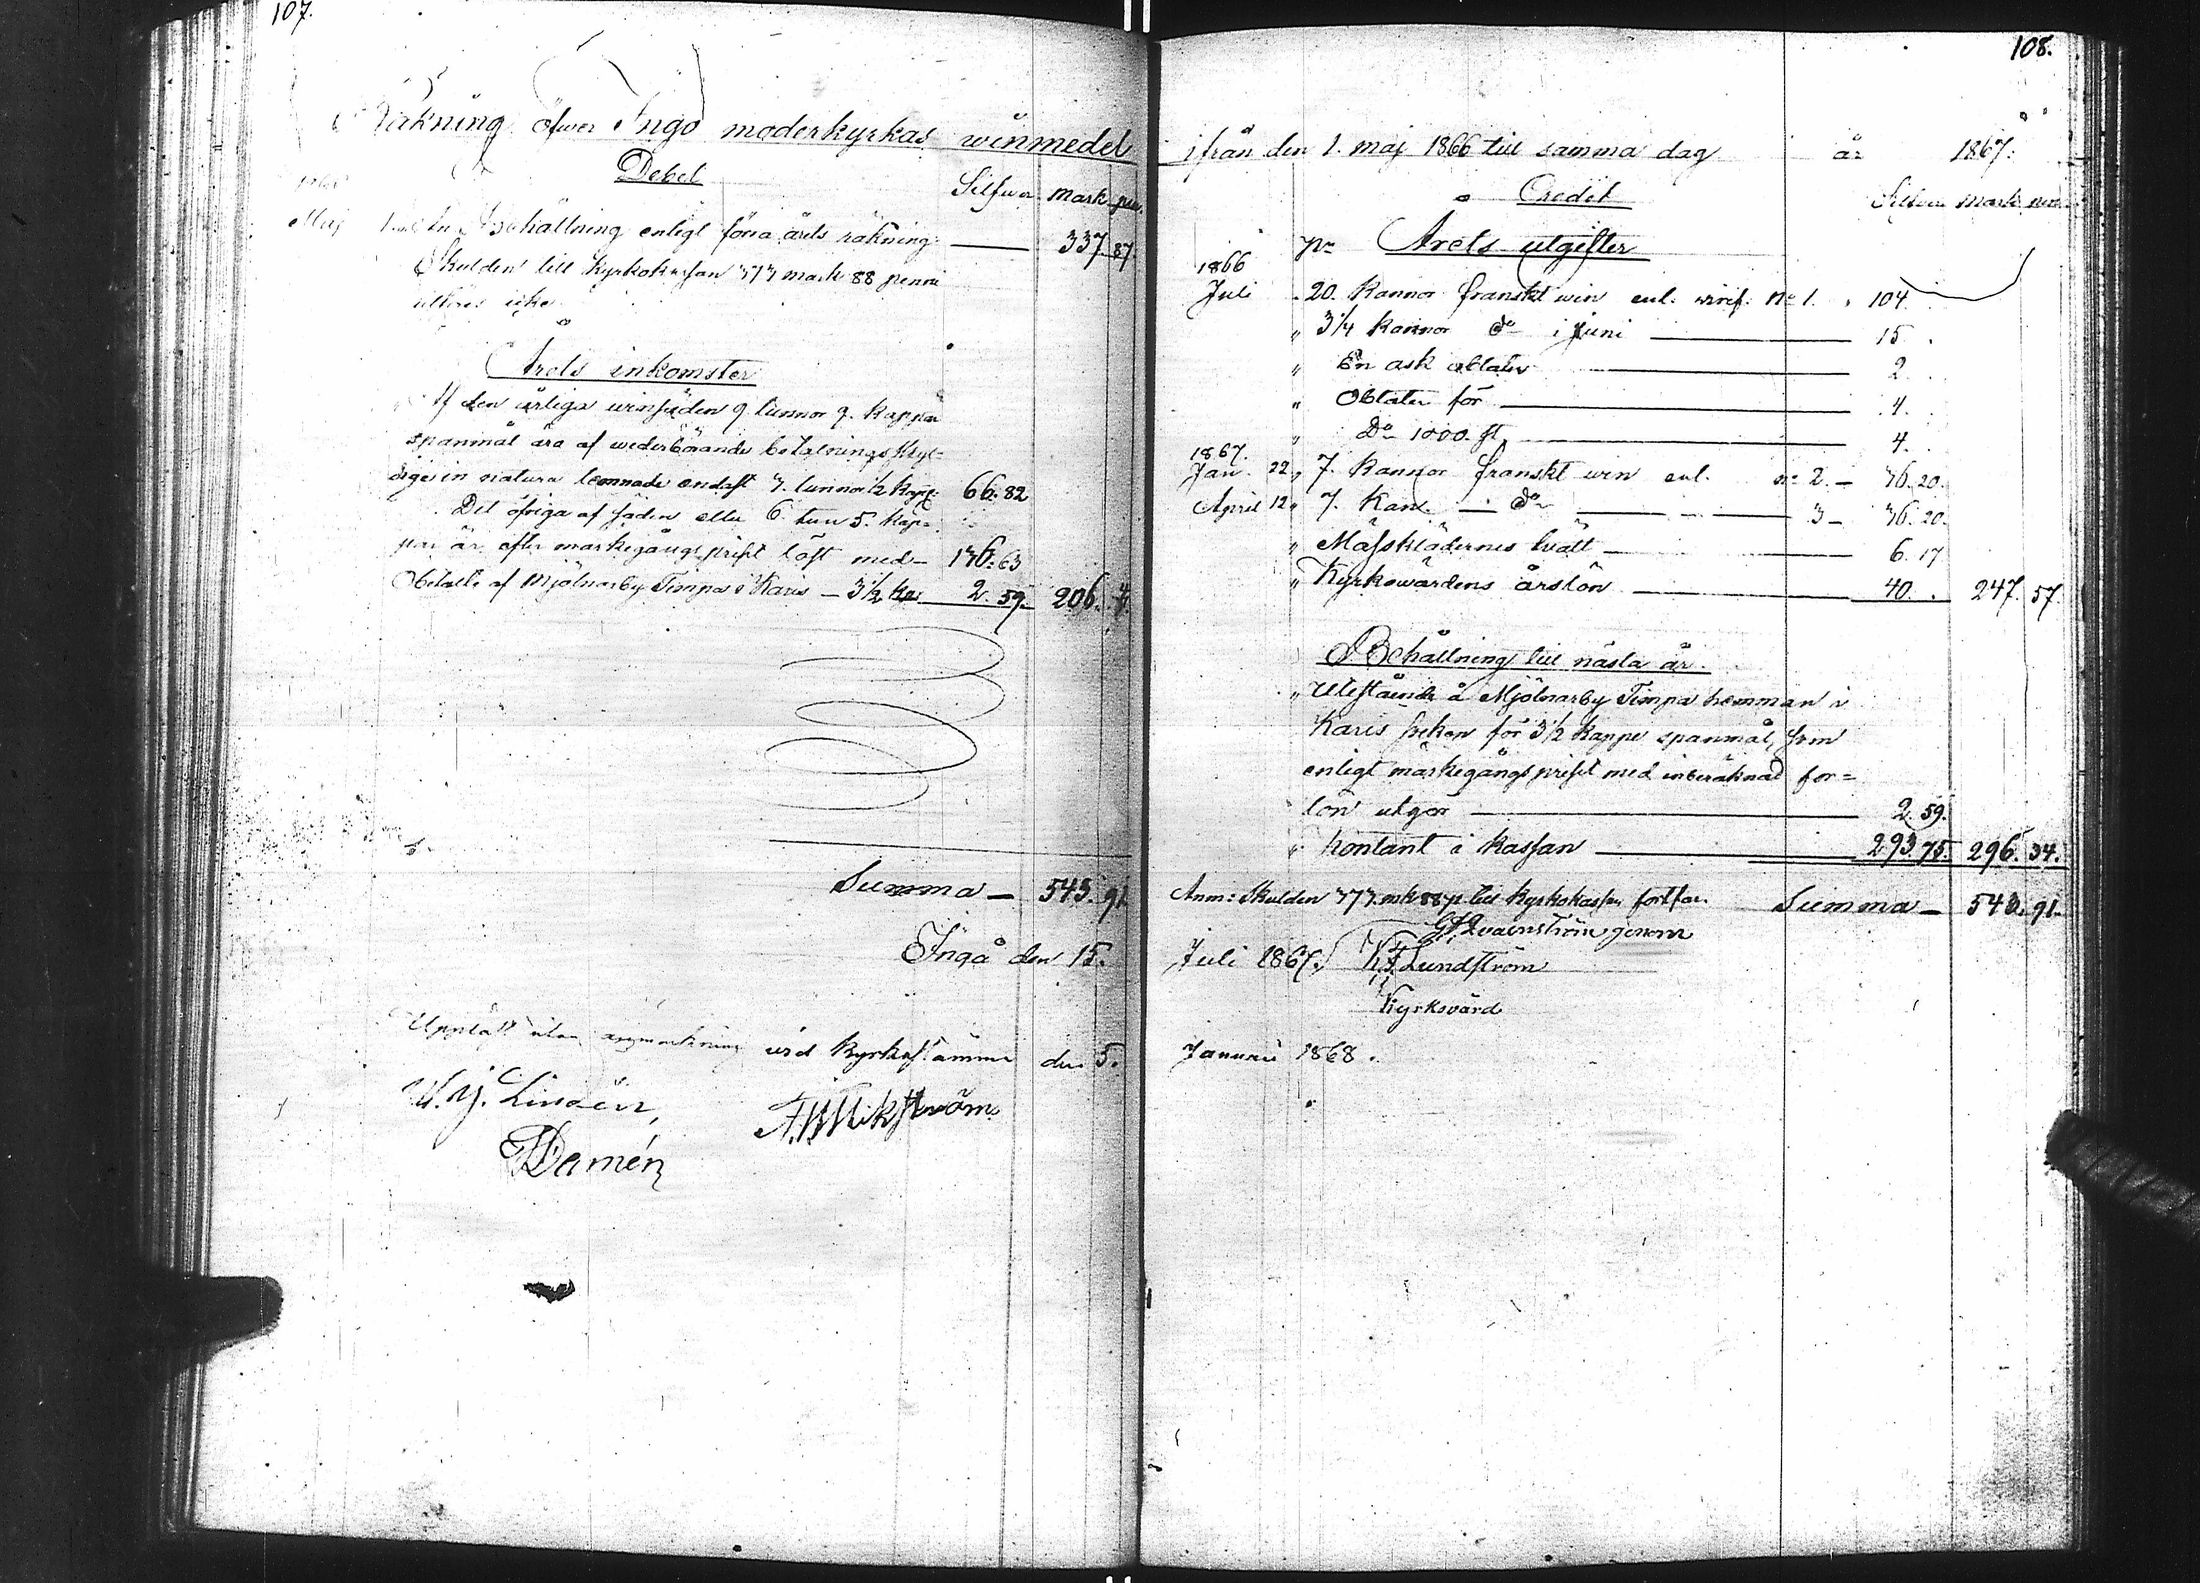 107.
Räkning öfwer Ingå moderkyrkas winmedel
Debet
Silfwer mark pen.
Maj 1. Behållning enligt förra årets räkning 337. 87.
Skulden till kyrkokassan 373 mark 88 penni
icke
Årets inkomster
Af den årliga winsäden 9 tunnor 9. kappar
spanmål äro af wederbörande betalningsskyl=
dige in natura lemnade endast 3. tunnor ½ kapp. 66. 82
Det öfriga af säden eller 6. tun 5. kap=
par är efter markegångspriset löst med 136. 63
Obetalt af Mjölnarby Timpa i Karis 3½ ka. 2. 59. 206. 4.
Summa 543. 91
Ingå den 15.
utan anmärkning wid kyrkostämma den 5.
Lindén,
F. W. Wikström
Damén
108.
ifrån den 1. maj 1866 till samma dag år 1867.
Credit
Silfwer mark pen.
Pr Årets utgifter
1866
Juli 20. kannor franskt win enl. verif. No 1. 104.
" 3¼ kannor do i Juni 15.
" En ask oblater 2.
" Oblater för 4.
" Do 1000. st. 4.
1867.
Jan. 22 " 7. kannor franskt win enl. no 2. 36. 20.
April 12 " 7. Kan. do 3 36. 20.
" Mässklädernes twätt 6. 17
" Kyrkowärdens årslön 40. 247. 57.
Behållning till nästa år.
" Utestående å Mjölnarby Timpa hemman i
Karis socken för 3½ kappe spanmål, som
enligt markegångspriset med inberäknad for=
lön utgör 2. 59.
" kontant i kassan 293. 75. 296. 34.
Anm: Skulden 373. mk 88 p. till kyrkokassan fortfar. Summa 543. 91.
genom
Juli 1867. Lundström
Kyrkovärd
Januari 1868.